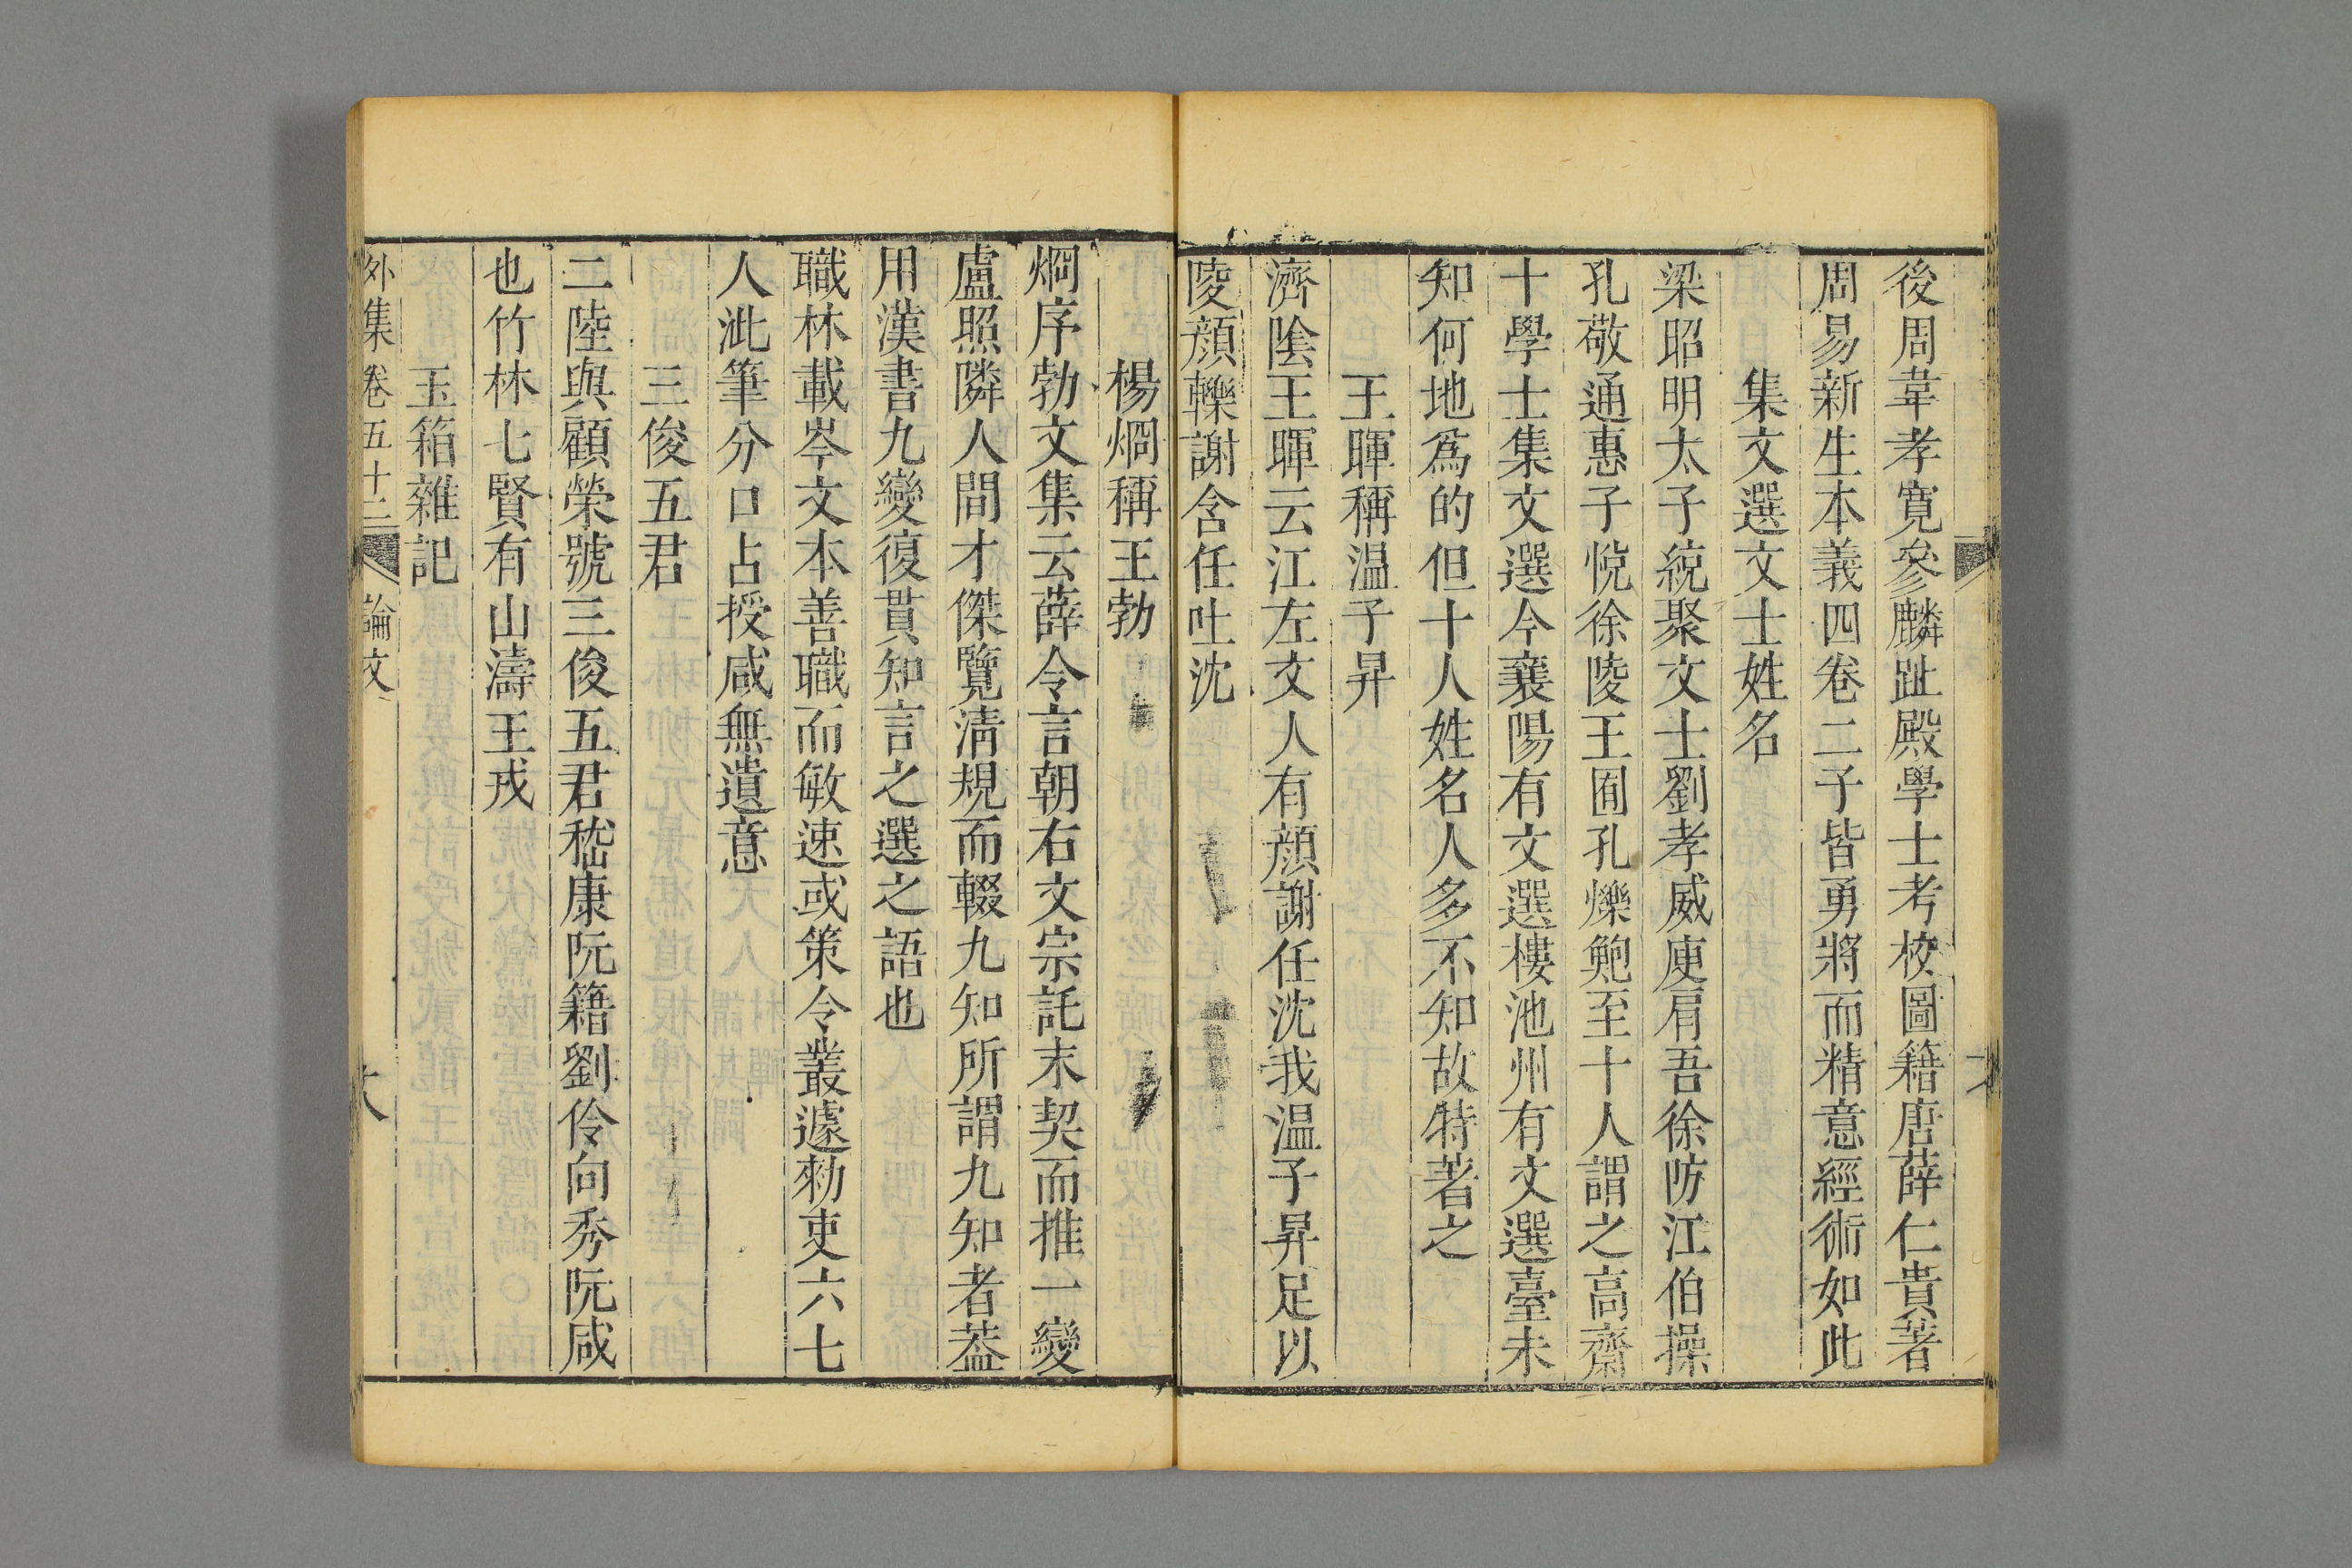 後周韋孝寬參麟趾殿學士考校圖籍唐薛仁貴著
周易新生本義四卷二子皆勇將而精意經術如此
集文選文士姓名
梁昭明太子統聚文士劉孝威庾肩吾徐防江伯操
孔敬通惠子悅徐陵王囿孔爍鮑至十人謂之高齋
十學士集文選今襄陽有文選樓池州有文選臺未
知何地爲的但十人姓名人多不知故特著之
王暉稱温子昇
濟陰王暉云江左文人有顔謝任沈我温子昇足以
陵顔轢謝含任吐沈
楊烱稱王勃
烱序勃文集云薛令言朝右文宗託末契而推一變
盧照隣人間才傑覽淸規而輟九知所謂九知者葢
用漢書九變復貫知言之選之語也
職林載岑文本善職而敏速或策令叢遽勑吏六七
人泚筆分口占授咸無遺意
三俊五君
二陸與顧榮號三俊五君嵇康阮籍劉伶向秀阮咸
也竹林七賢有山濤王戎
玉箱雜記
外集卷五十二 論文